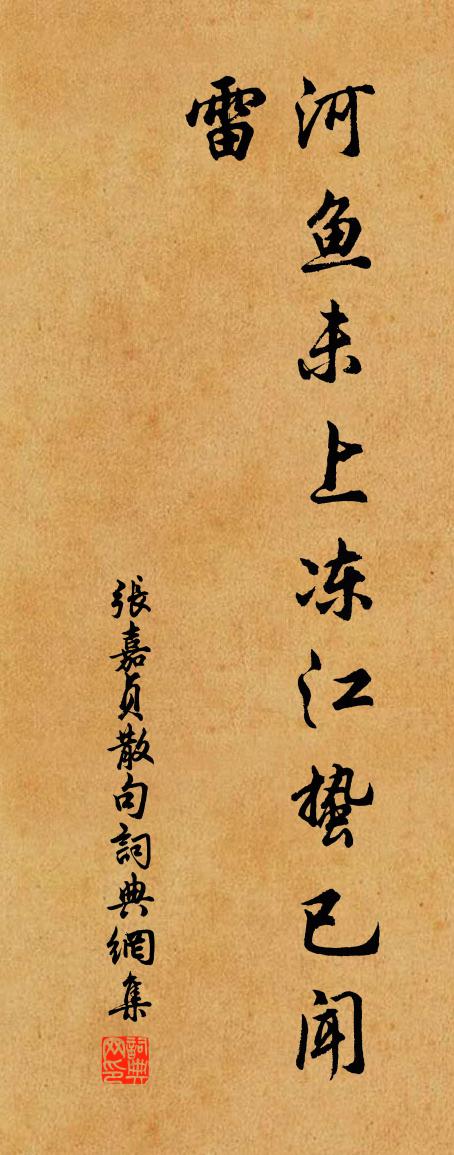 河鱼未上冻江蛰已闻
雷
張嘉貞散句詞典網集
詞典
网印